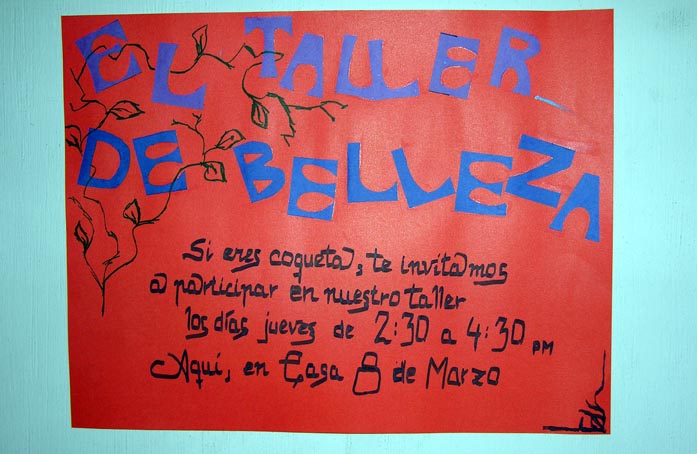 EL TALLER
DE BELLEZA
Si eres coqueta, te invitamos
a participar en nuestro taller
los días jueves de 2:30 a 4:30 PM
Aquí, en Casa 8 de Marzo